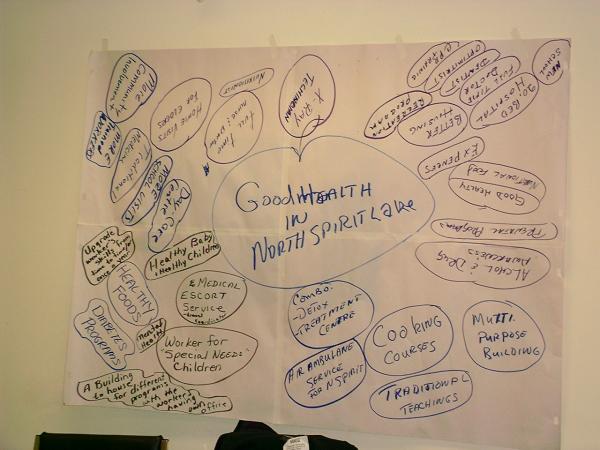 Good Health
IN
NORTH SPIRIT LAKE
X-RAY
TECHNICIAN
Nutritionist
full time
nurse
HOME VISITS
FOR ELDERS
More
Community
Involvement
MORE
Trained
WORKERS
Traditional
Medicine
MORE
SCHOOL VISITS
Day Care
Centre
Healthy Baby
+ Healthy Children
Upgrade
HEALTHY
FOODS
DIABETES
PROGRAMS
mental
Health
& MEDICAL
ESCORT
Service
Worker for
"Special Needs"
Children
A Building
to house different
for programs
with the
workers
having own
office
COMBO.
-DETOX
-TREATMENT
CENTRE
AIR AMBULANE
SERVICE
FOR N SPIRIT
COOKING
COURSES
TRADITIONAL
TEACHINGS
MULTI
PURPOSE
BUILDING
ALCHOL & DRUG
AWARENESS
PRENATAL PROGRAMS
GOOD HEALTHY
NUTRITIONAL FOOD
EXPENCES
BETTER
HOUSING
RECREATION
PROGRAM
30 BED
HOSPITAL
FULL TIME
DOCTOR
DENTIST
OPTIMITRIST
SCHOOL